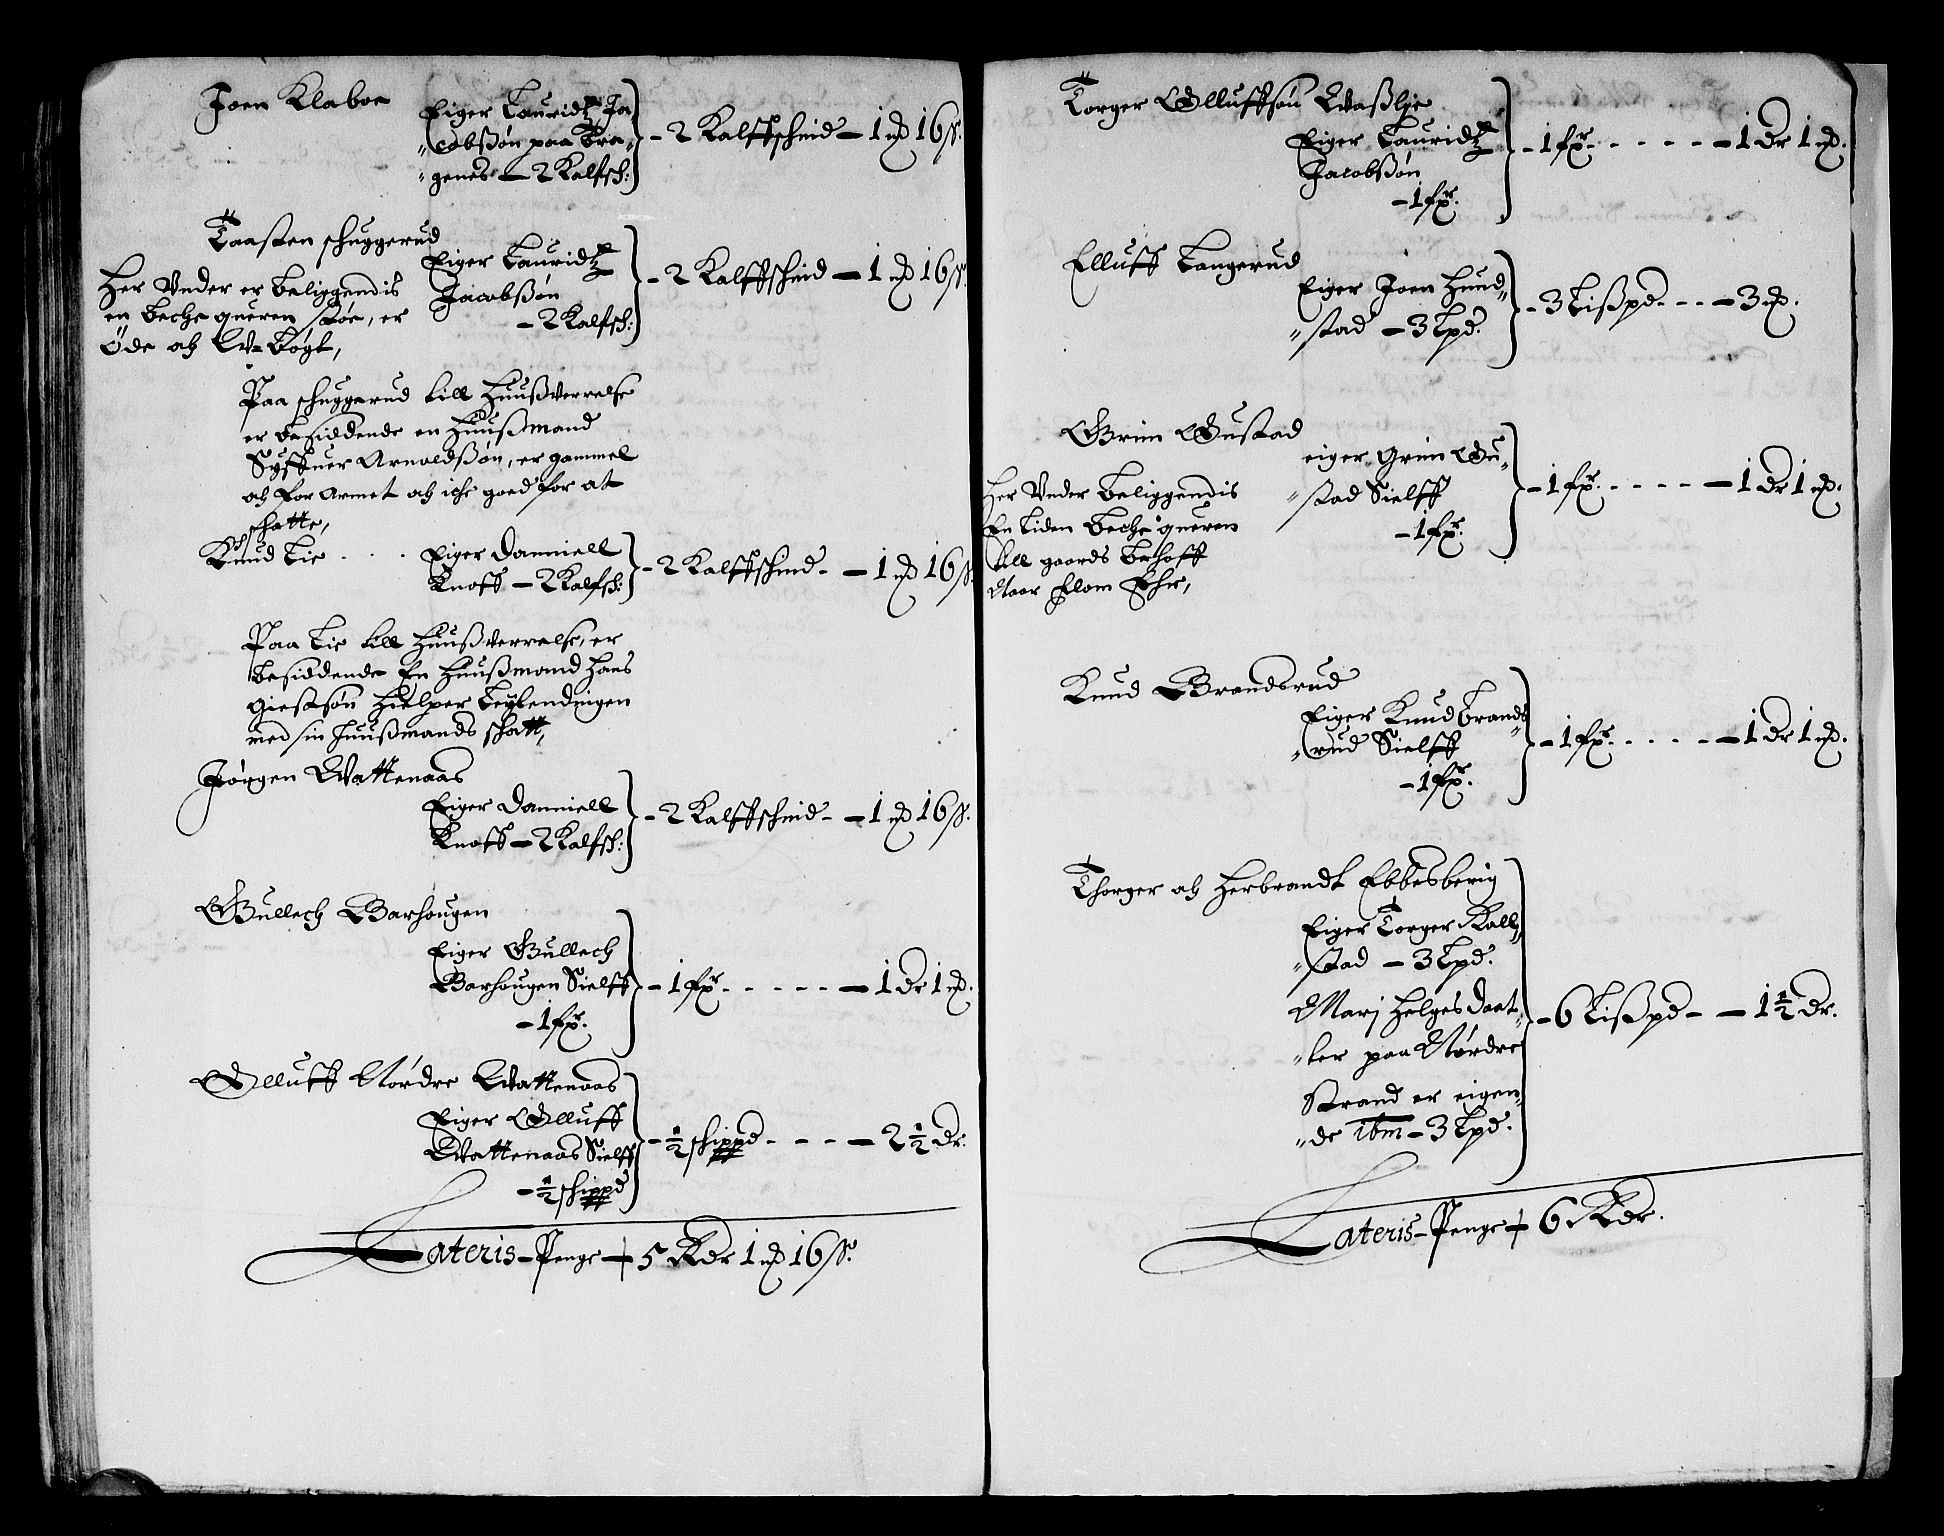 Joen Klaboe
Eiger Lauridtz Ja
"cobßøn paa Bra-
"genes - 2 Kalfsch:
- 2 Kalffschind - 1 mk 16 ß.
Taasten Schuggerud
Eiger Lauridtz
Jacobßøn
- 2 Kalfsch:
- 2 Kalffschind - 1 mk 16 ß.
Her Under er beliggendis
en beche queren støe, er
øde och
Paa Schuggerud till Huußverrelse
er besiddende en Huußmand
Syffuer Arnoldßøn, er gammel
och for Armet och iche goed for at
schatte,
Knud Lie . . .
Eiger Danniell
Knoff - 2 Kalfsch:
- 2 Kalffschind - - 1 mk 16 ß.
Paa Lie till Huußverrelse, er
besiddende En Huußmand Hans
Hielper Leylendingen
med sin Huußmands schatt,
Jørgen Wattenaas
Eiger Danniell
Knoff - 2 Kalfsch:
- 2 Kalffschind - - 1 mk 16 ß.
Gullech Barhougen
Eiger Gullech
Barhougen Sielff
- 1 fr.
- 1 fr. - - - - - 1 dr 1 mk.
Olluff Nørdre Wattenaas
Eiger Olluff
Wattenaas Sielff
- ½ schippd
- ½ schippd - - - - 2½ dr.
Lateris - Penge - 5 Rdr 1 mk 16 ß.
Torger Olluffsøn Waßlie
Eiger Lauridtz
Jacobßøn
- 1 fr.
- 1 fr. - - - - - 1 dr 1 mk.
Elluff Langerud
Eiger Joen Hund"
"stad - 3 Lpd.
- 3 Lißpd. - - - 3 mk.
Grim Gustad
eiger Grim Gu"
"stad Sielff
- 1 fr.
- 1 fr. - - - - - 1 dr 1 mk.
Her Under beliggendis
En liden beche queren
till gaards behoff
Naar Flom Ehr,
Knud Brandsrud
Eiger Knud Brands"
"rud Sielff
- 1 fr.
- 1 fr. - - - - - 1 dr 1 mk.
Thorger och Herbrandt Ebbesberig
Eiger Torger Kall"
"stad - 3 Lpd.
Marj Helges daat"
"ter paa Nørdre
Strand er eigen"
"de ibm - 3 Lpd.
- 6 Lißpd - - 1½ dr.
Lateris - Penge - 6 Rdr.